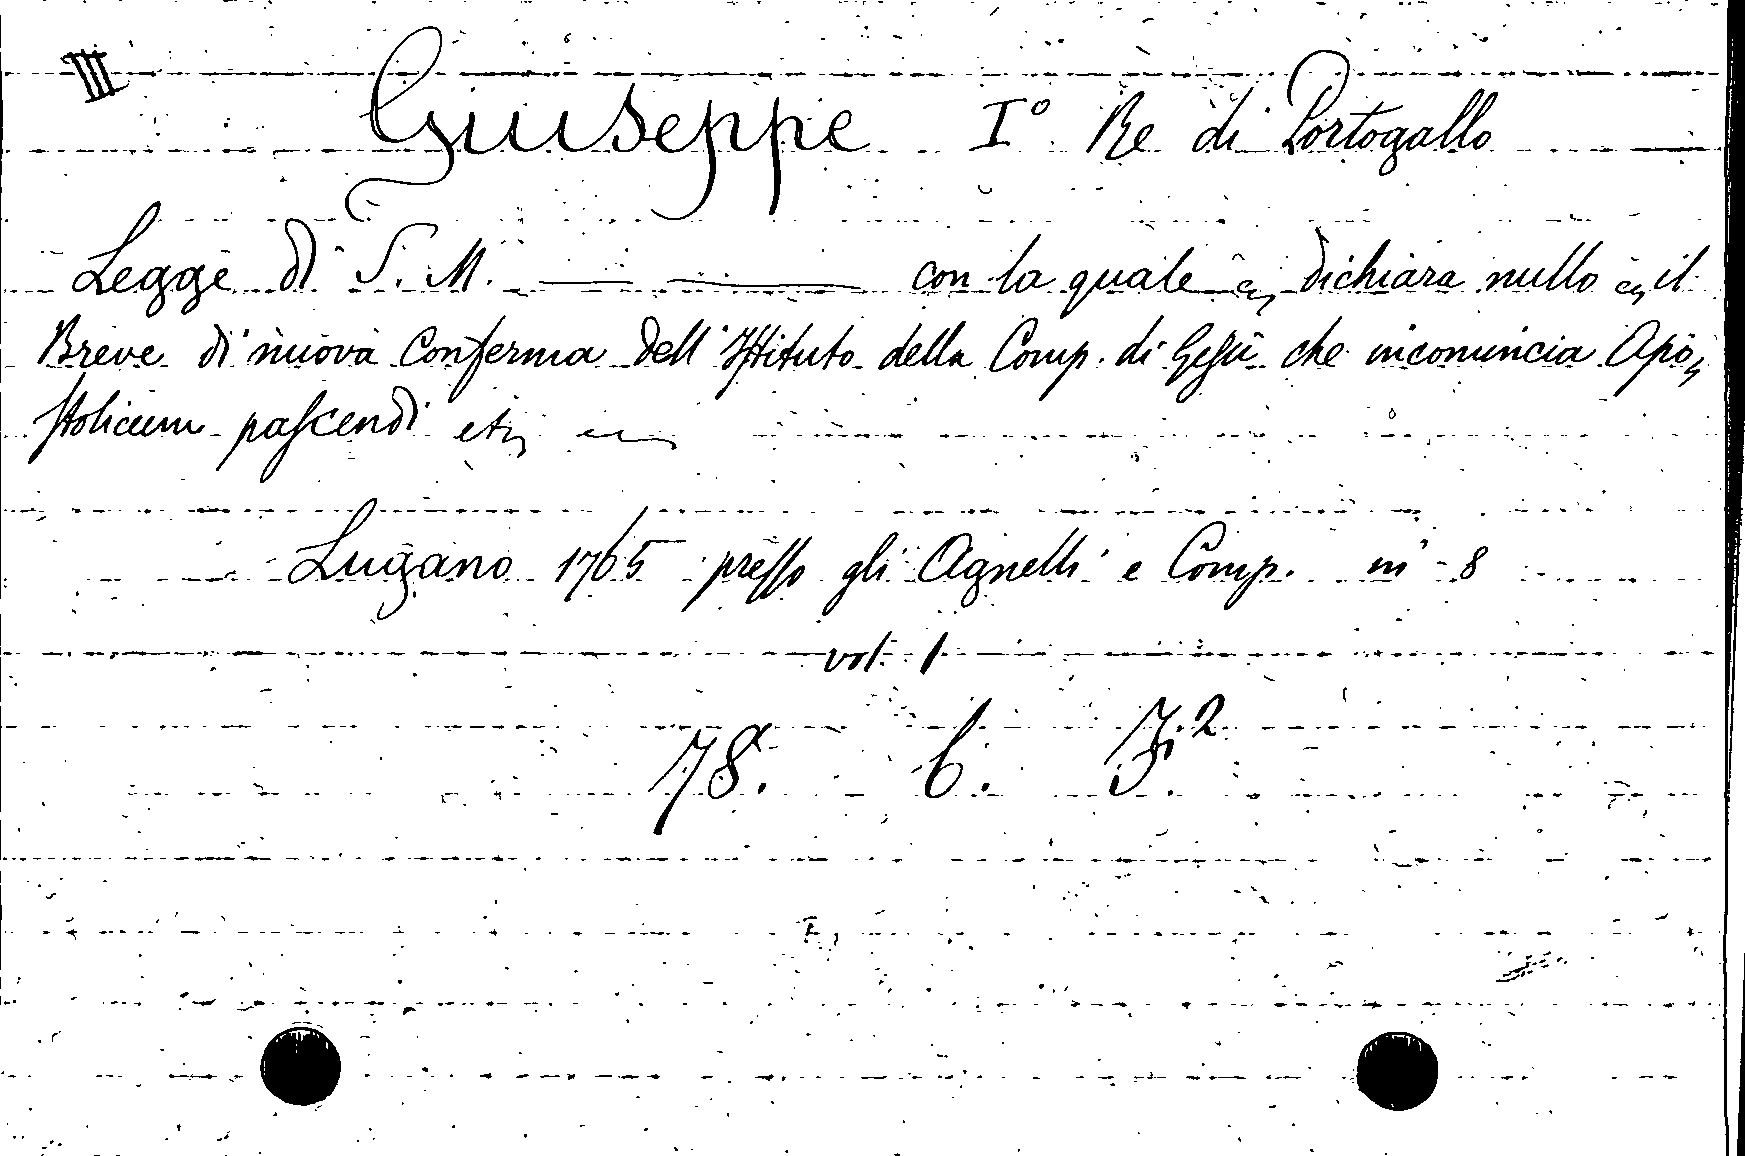 III
Giuseppe I° Re di Portogallo
Legge di S. M. —— —— con la quale dichiara nullo il
Breve di nuova Conferma dell'Istituto della Comp. di Gesù che incomincia Apo,
stolicum pascendi etc
Lugano 1765 presso gli Agnelli e Comp. in 8
vol. 1
78. 6.